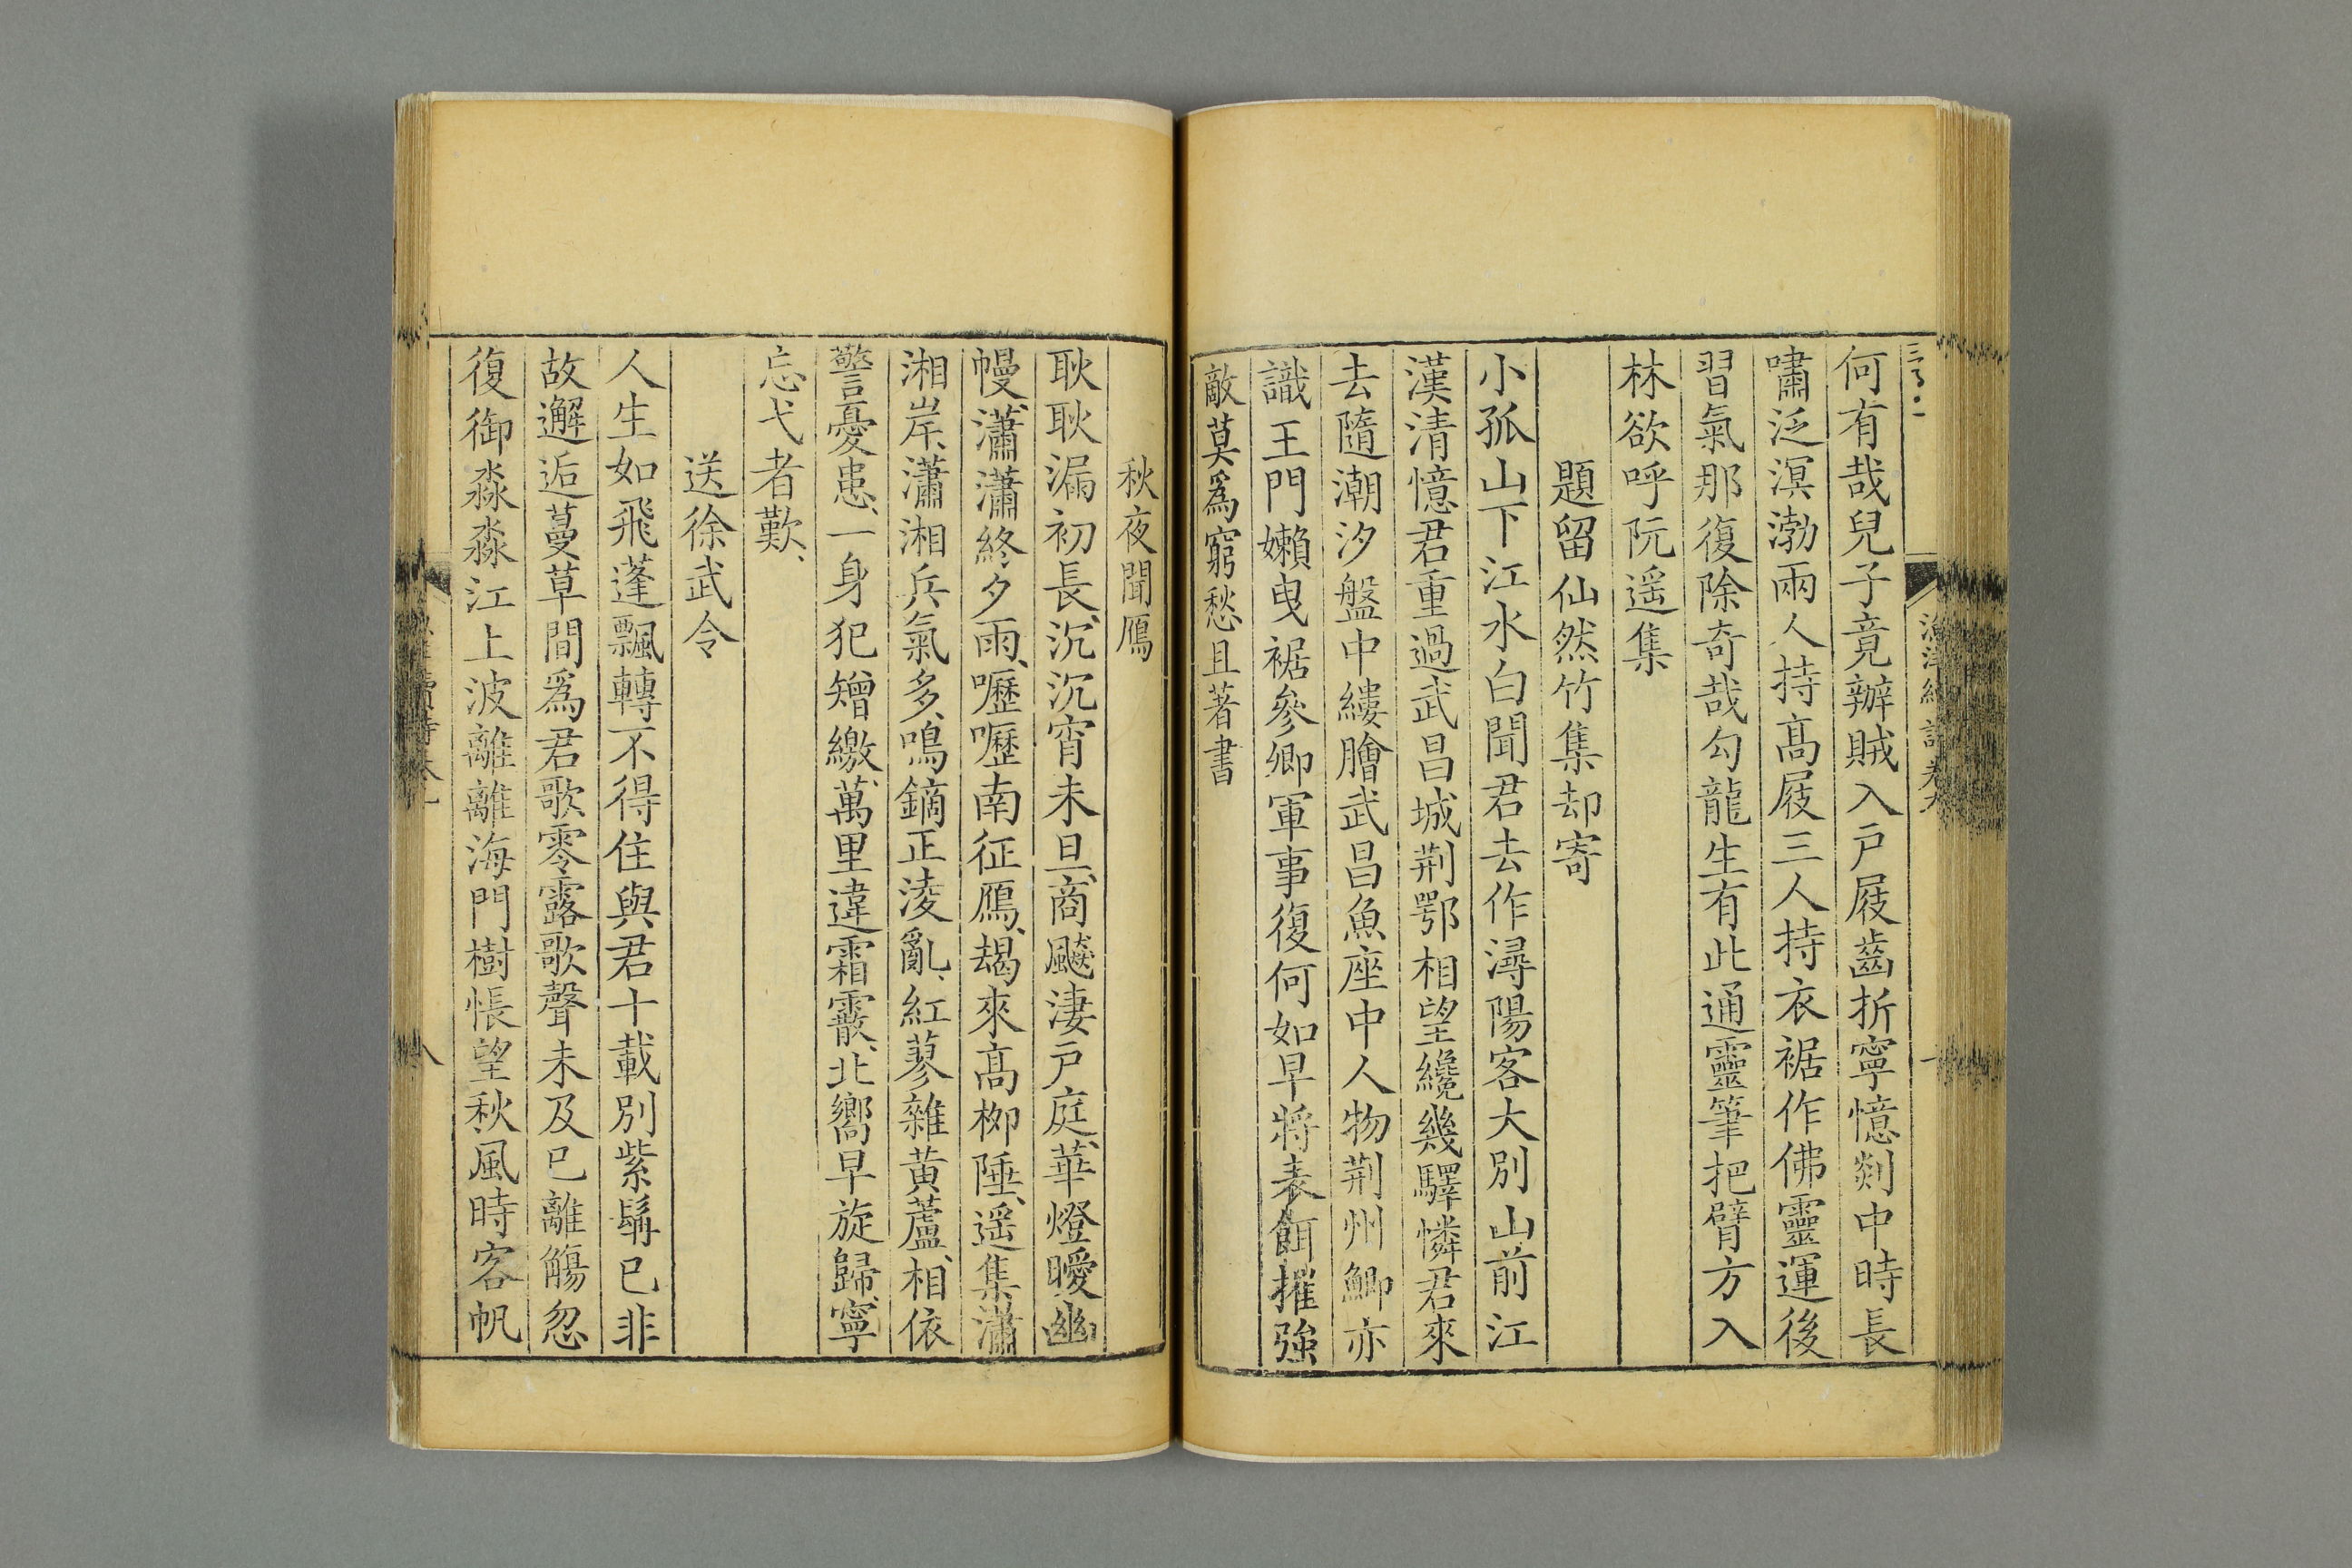 何有哉兒子竟辦賊入戶屐齒折寧憶剡中時長
嘯泛溟渤兩人持高屐三人持衣裾作佛靈運後
習氣那復除奇哉勾龍生有此通靈筆把臂方入
林欲呼阮遥集
題留仙然竹集却寄
小孤山下江水白聞君去作潯陽客大別山前江
漢清憶君重過武昌城荆鄂相望纔幾驛憐君來
去隨潮汐盤中縷膾武昌魚座中人物荆州鯽亦
識王門嬾曳裾參卿軍事復何如早將表餌摧強
敵莫爲窮愁且著書
秋夜聞鴈
耿耿漏初長、沉沉宵未旦、商飈淒戸庭、華燈曖幽
幔、瀟瀟終夕雨、嚦嚦南征鴈、朅來高栁陲、遥集瀟
湘岸、瀟湘兵氣多、鳴鏑正淩亂、紅蓼雜黄蘆、相依
警憂患、一身犯矰繳、萬里違霜霰、北嚮早旋歸、寧
忘弋者歎、
送徐武令
人生如飛蓬飄轉不得住與君十載別紫髯已非
故邂逅蔓草間爲君歌零露歌聲未及已離觴忽
復御淼淼江上波離離海門樹悵望秋風時客帆
八